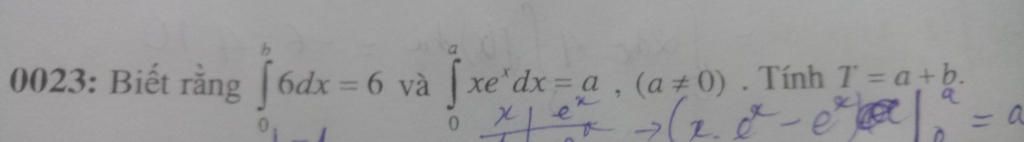 0023: Biết rằng ∫₀ᵇ 6dx = 6 và ∫₀ᵃ xeˣdx = a , (a ≠ 0) . Tính T = a + b.
x | eˣ → (x. eˣ − eˣ) |₀ᵃ = a